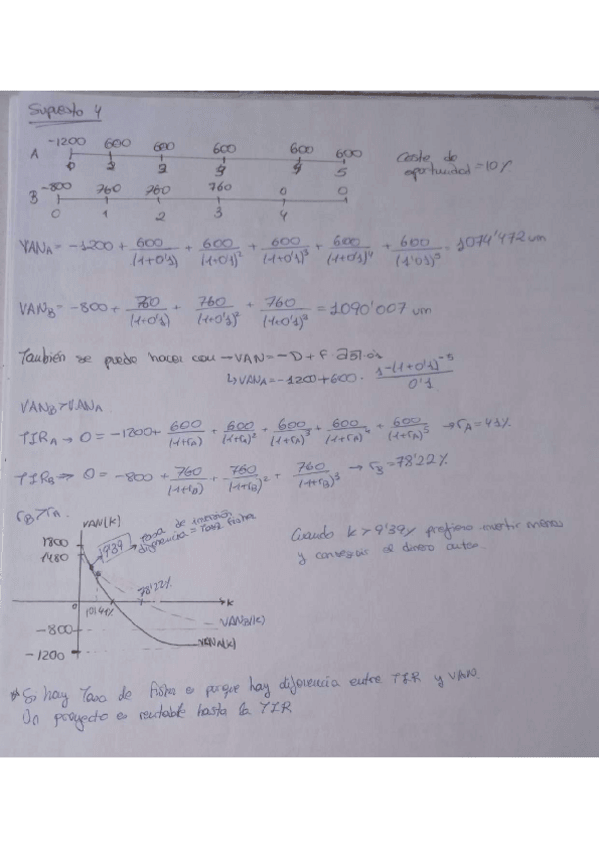 Supuesto 4
-1200 600 600 600 600 600
A
0 2 2 3 4 5
Coste de oportunidad = 10%
-800 760 760 760 0 0
B
0 1 2 3 4
VAN_A = -1200 + 600/(1+0'1) + 600/(1+0'1)² + 600/(1+0'1)³ + 600/(1+0'1)⁴ + 600/(1'01)⁵ = 1074'472 um
VAN_B = -800 + 760/(1+0'1) + 760/(1+0'1)² + 760/(1+0'1)³ = 1090'007 um
También se puede hacer con → VAN = -D + F · a
↳ VAN_A = -1200 + 600 · 1-(1+0'1)⁻⁵/0'1
VAN_B > VAN_A
TIR_A → 0 = -1200 + 600/(1+r_A) + 600/(1+r_A)² + 600/(1+r_A)³ + 600/(1+r_A)⁴ + 600/(1+r_A)⁵ → r_A = 41%
TIR_B → 0 = -800 + 760/(1+r_B) + 760/(1+r_B)² + 760/(1+r_B)³ → r_B = 78'22%
r_B > r_A.
VAN(K)
Tasa de inversión
diferencia = Tasa Fisher
1800
1480
9'39
78'22%
0
K
-800
VAN_B(K)
VAN_A(K)
-1200
Cuando K > 9'39% prefiero invertir menos
y conseguir el dinero antes.
* Si hay Tasa de Fisher es porque hay diferencia entre TIR y VAN.
Un proyecto es rentable hasta la TIR